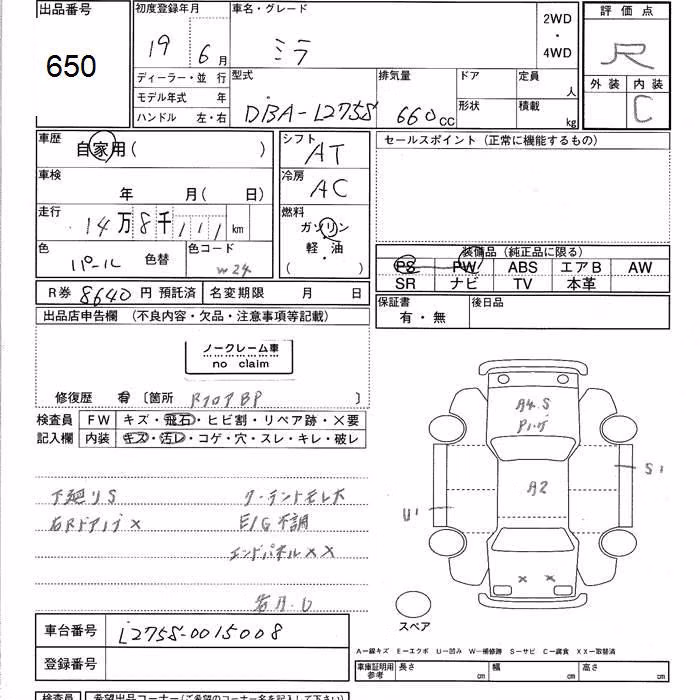 出品番号
650
初度登録年月
19年 6月
車名・グレード
ミラ
2WD
・
4WD
評価点
R
外装 内装
C
ディーラー・並行
モデル年式 年
ハンドル 左・右
型式
DBA-L275S
排気量
660cc
ドア
形状
定員 人
積載 kg
車歴
自家用( )
車検
年 月( 日)
走行
14万8千111km
色
パール 色替
色コード
W24
シフト
AT
冷房
AC
燃料
ガソリン
軽・油
( )
セールスポイント(正常に機能するもの)
装備品(純正品に限る)
PS PW ABS エアB AW
SR ナビ TV 本革
R券 8640円預託済 名変期限 月 日
保証書 有・無
後日品
出品店申告欄 (不良内容・欠品・注意事項等記載)
ノークレーム車
no claim
修復歴 有 〔箇所 RフロアBP 〕
検査員 FW キズ・飛石・ヒビ割・リペア跡・×要
記入欄 内装 キズ・汚レ・コゲ・穴・スレ・キレ・破レ
下廻りS
E/G不調
エンドパネル××
A4.S
A2
S1
U1
× ×
スペア
車台番号 L275S-0015008
登録番号
A−線キズ E−エクボ U−凹み W−補修跡 S−サビ C−腐食 XX−取替済
車庫証明用参考 長さ cm 幅 cm 高さ cm
検査員 希望出品コーナー(ご希望のコーナー名を記入して下さい)